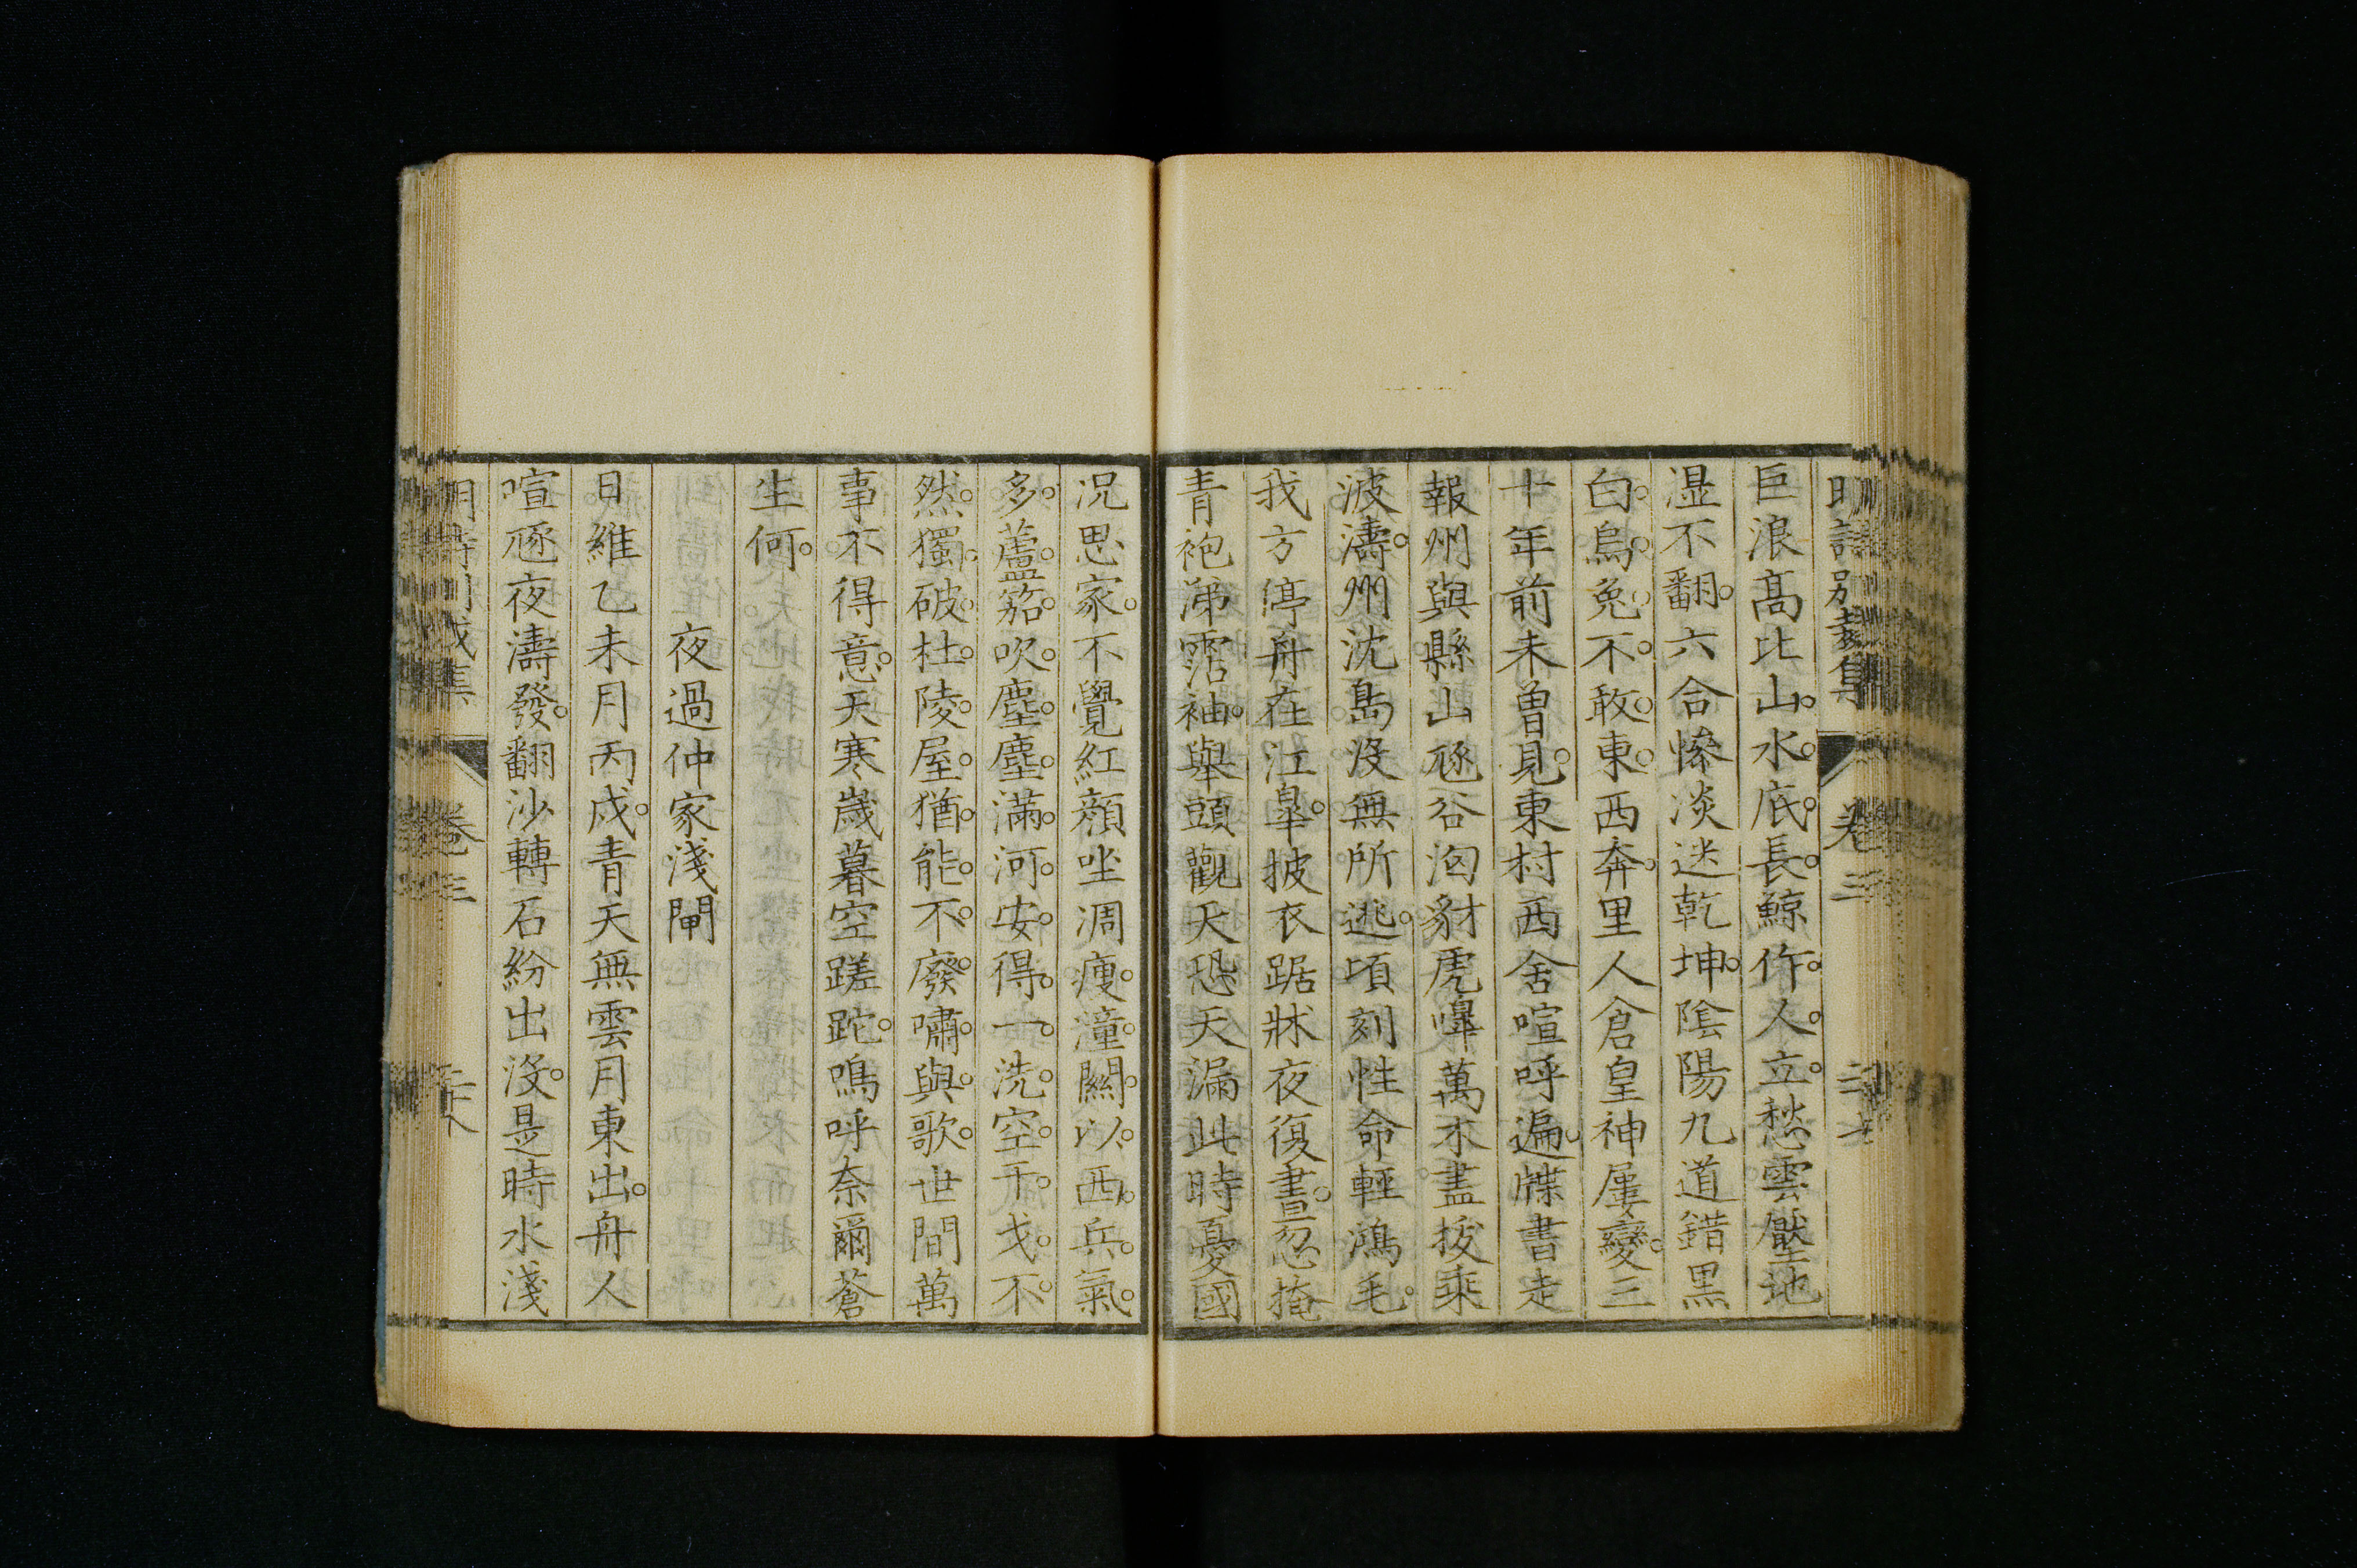 巨浪高比山。水。底。長。鯨作。人。立。愁雲壓地
濕不翻。六合慘淡迷乾坤。陰陽九道錯黑
白。烏。兔。不。敢。東。西奔。里人倉皇神屢變。三
十年前未曾見。東村西舍喧呼遍。牒書走
報州與縣山巵谷洶豺虎嘷萬木盡拔乘
波濤。州沈島沒無所逃。頃刻性命輕鴻毛。
我方停舟在江皋。披衣踞牀夜復晝。忽掩
青袍涕霑袖。舉頭觀天恐天漏此時憂國
况思家。不覺紅顏坐凋瘦。潼。關。以。西。兵。氣。
多。蘆。笳。吹。塵。塵。滿。河。安。得。一。洗。空。干。戈。不。
然。獨。破。杜。陵。屋。猶。能。不。廢。嘯。與。歌。世間萬
事不得意。天寒歲暮空蹉跎。嗚呼奈爾蒼
生何。
夜過仲家淺閘
日維乙未月丙戌。青天無雲月東出。舟人
喧巵夜濤發。翻沙轉石紛出沒。是時水淺
卷三